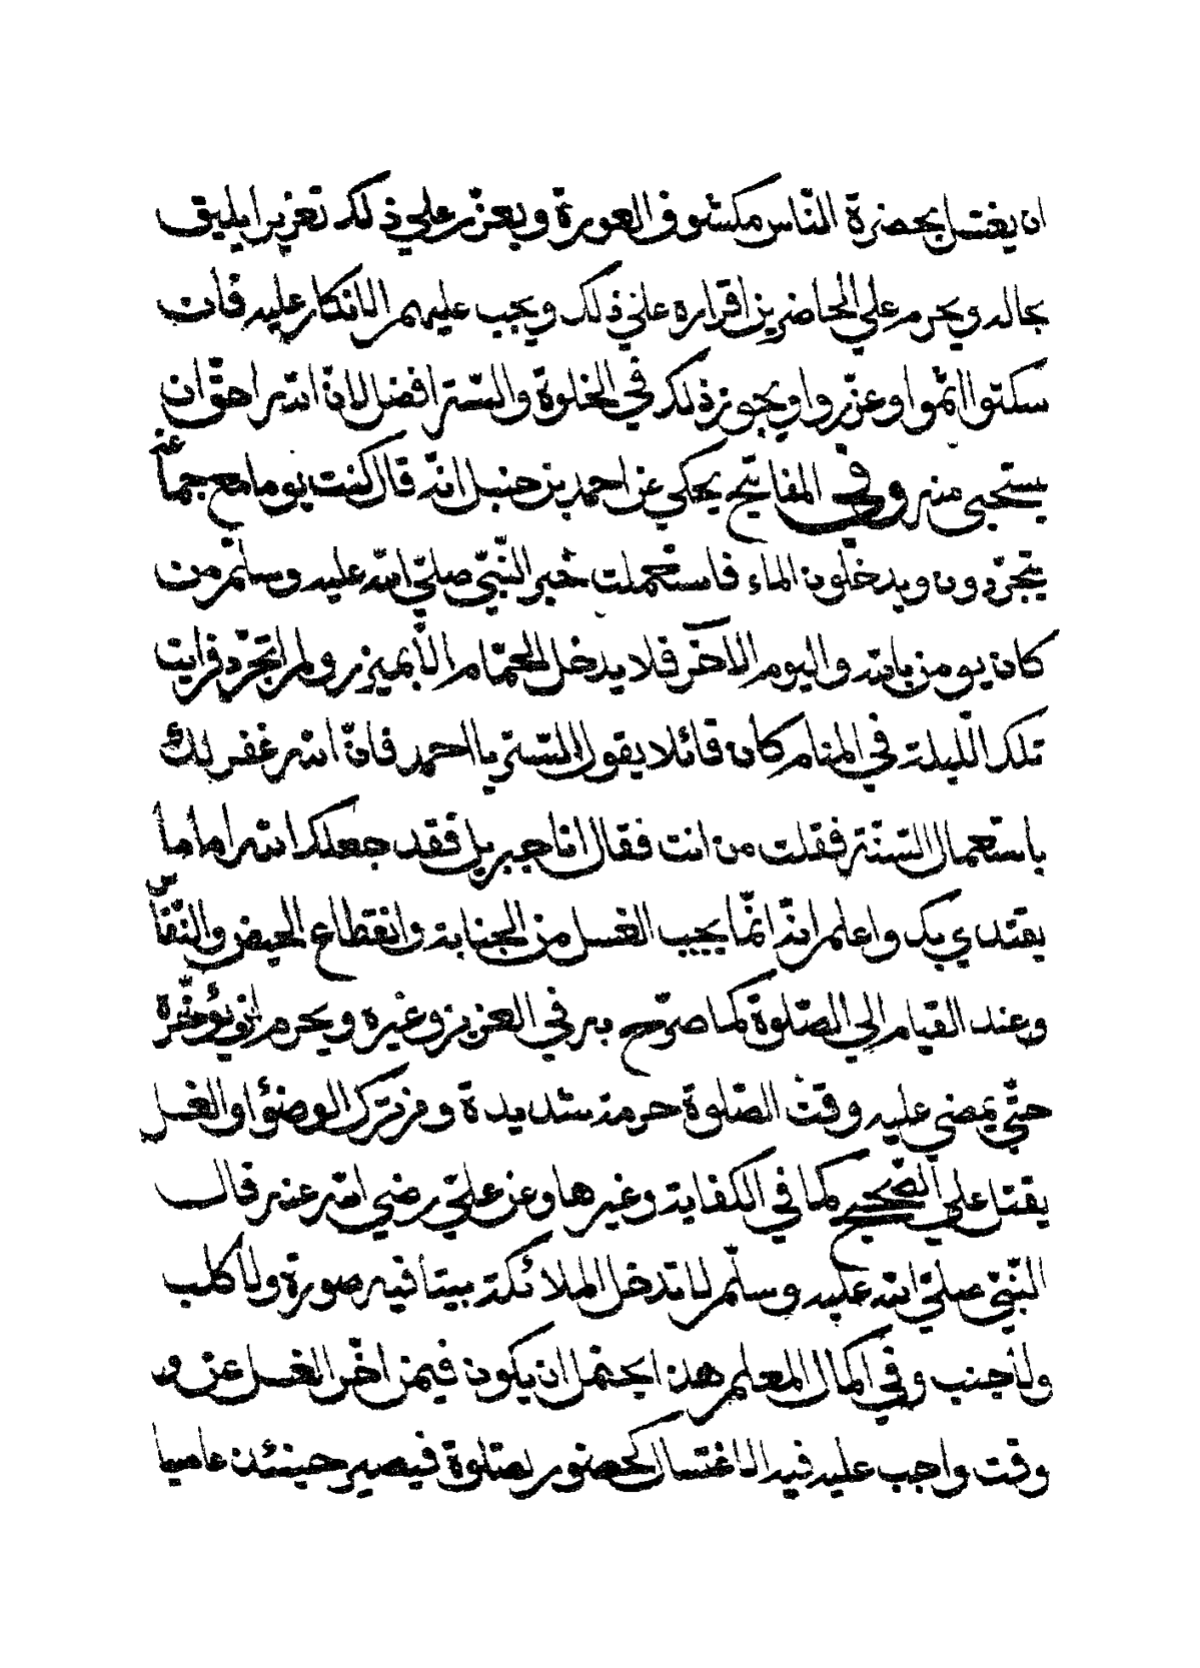 ان يغتسل بحضرة الناس مكشوف العورة ويعزر علي ذلك تعزيرا يليق
بحاله ويحرم علي الحاضرين اقراره علي ذلك ويجب عليهم الانكار عليه فان
سكتوا اثموا وعزروا ويجوز ذلك في الخلوة والستر افضل لان الله احق ان
يستحيى منه وفي المفاتيح يحكي عن احمد بن حنبل انه قال كنت يوما مع جماعة
يتجردون ويدخلون الماء فاستعملت خبر النبي صلي الله عليه وسلم من
كان يومن بالله واليوم الآخر فلا يدخل الحمام الا بميزر ولم اتجرد فرايت
تلك الليلة في المنام كان قائلا يقول السّتر يا احمد فان الله غفر لك
باستعمال السنة فقلت من انت فقال انا جبريل فقد جعلك الله اماما
يقتدي بك واعلم انه انما يجب الغسل من الجنابة وانقطاع الحيض والنفاس
وعند القيام الي الصلوة كما صرح به في العزيز وغيره ويحرم ان يؤخره
حتي يمضي عليه وقت الصلوة حرمة شديدة ومن ترك الوضؤ او الغسل
يقتل علي الصحيح كما في الكفاية وغيرها وعن علي رضي الله عنه قال
النبي صلي الله عليه وسلم لا تدخل الملائكة بيتا فيه صورة ولا كلب
ولا جنب وفي اكمال المعلم هذا يحتمل ان يكون فيمن اخر الغسل عن و
وقت واجب عليه فيه الاغتسال لحضور لصلوة فيصير حينئذ عاصيا